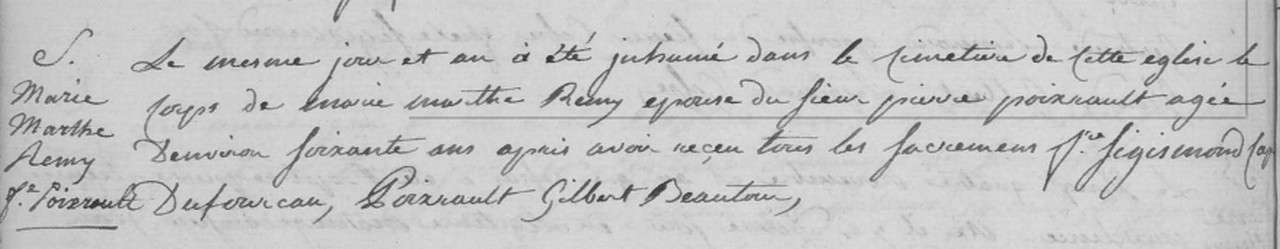 S.
Marie
Marthe
Remy
fe. Poixrault
Le mesme jour et an a été juhumé dans le cimetiere de cette eglise le
corps de marie marthe Remy epouse du sieur pierre poixrault agée
Denviron soixante ans apris avoir reçeu tous les sacremens fr. sigismond Cap
Dufourcau, Poixrault Gilbert Beautour,